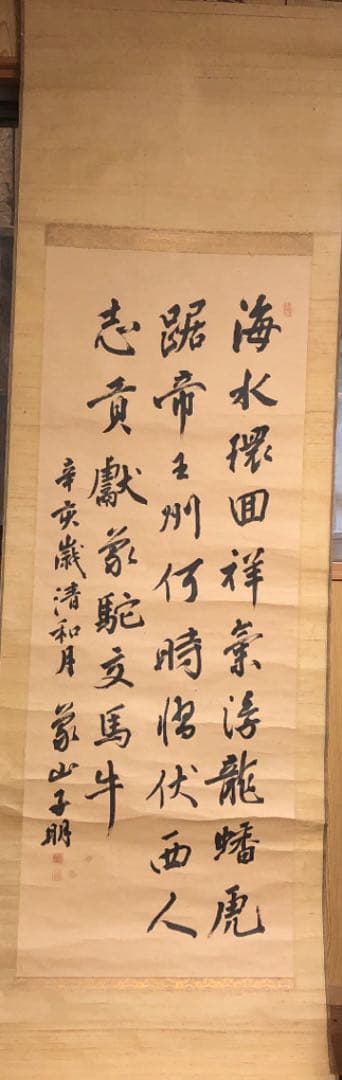 海水環回祥氣浮龍蟠虎
踞帝王州何時慴伏西人
志貢獻象駝交馬牛
辛亥歲清和月 象山子明